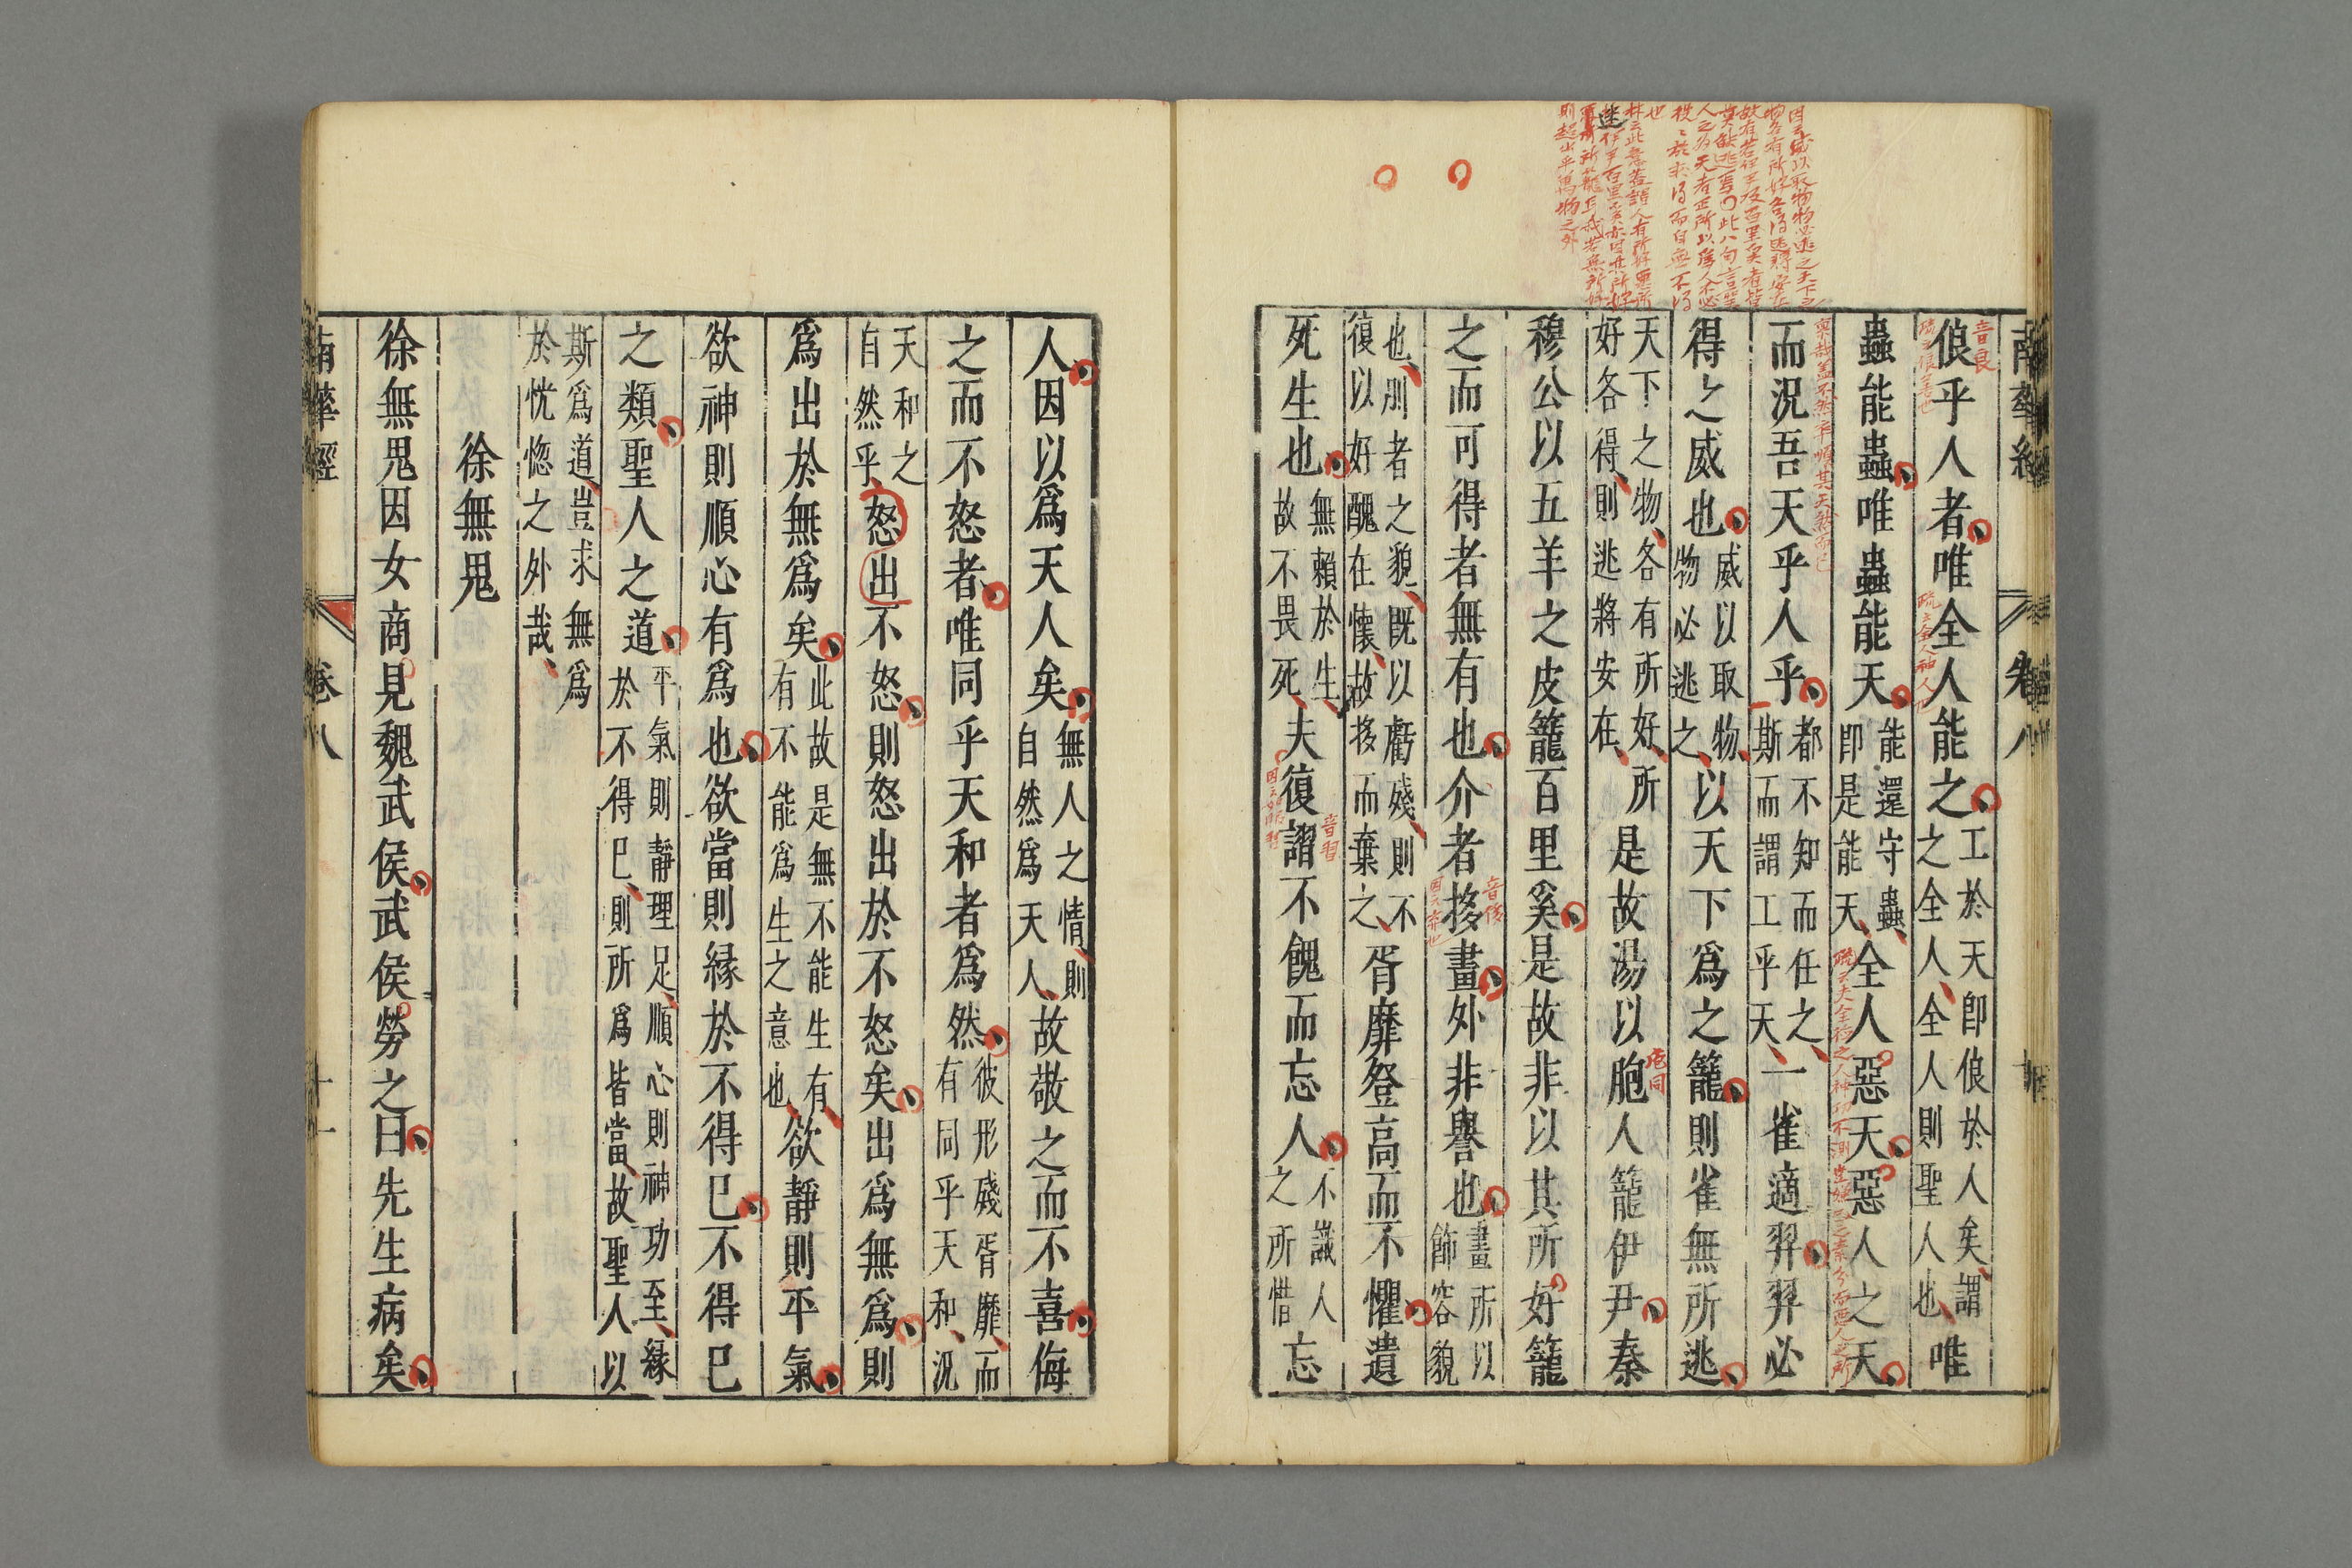 南華經 卷八
俍乎人者唯全人能之工於天即俍於人矣謂之全人全人則聖人也唯
蟲能蟲唯蟲能天能還守蟲即是能天全人惡天惡人之天
而況吾天乎人乎都不知而任之斯而謂工乎天一雀適羿羿必
得之威也威以取物物必逃之以天下爲之籠則雀無所逃
天下之物各有所好所好各得則逃將安在是故湯以胞人籠伊尹秦
穆公以五羊之皮籠百里奚是故非以其所好籠
之而可得者無有也介者拸畫外非譽也畫所以飾容貌
也刖者之貌既以虧殘則不復以好醜在懷故拸而棄之胥靡登高而不懼遺
死生也無賴於生故不畏死夫復謵不餽而忘人不識人之所惜忘
音良
音侈
音習
庖同
人因以爲天人矣無人之情則自然爲天人故敬之而不喜侮
之而不怒者唯同乎天和者爲然彼形殘胥靡而有同乎天和況
天和之自然乎怒出不怒則怒出於不怒矣出爲無爲則
爲出於無爲矣此故是無不能生有有不能爲生之意也欲靜則平氣
欲神則順心有爲也欲當則緣於不得已不得已
之類聖人之道平氣則靜理足順心則神功至緣於不得已則所爲皆當故聖人以
斯爲道豈求無爲於恍惚之外哉
徐無鬼
徐無鬼因女商見魏武侯武侯勞之曰先生病矣
南華經 卷八 十一